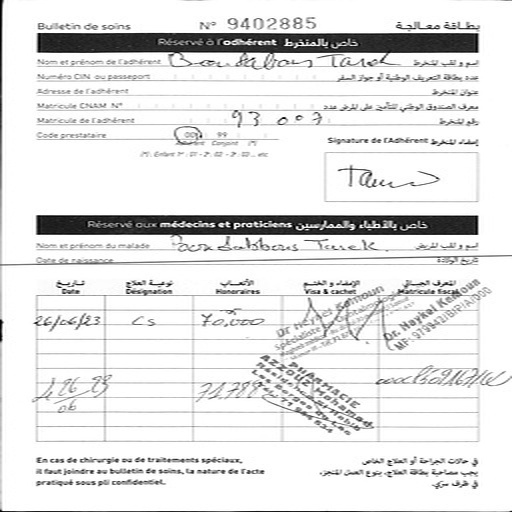 Bulletin de soins N° 9402885 بطاقة معالجة
Réservé à l'adhérent خاص بالمنخرط
Nom et prénom de l'adhérent Tarek إسم و لقب المنخرط
Numéro CIN ou passeport عدد بطاقة التعريف الوطنية أو جواز السفر
Adresse de l'adhérent عنوان المنخرط
Matricule CNAM N° معرف الصندوق الوطني للتأمين على المرض عدد
Matricule de l'adhérent 93 007 رقم المنخرط
Code prestataire 00 99
Adhérent Conjoint (*)
(*) : Enfant 1er : 01 - 2e : 02 - 3e : 03 ... etc
Signature de l'Adhérent إمضاء المنخرط
Réservé aux médecins et praticiens خاص بالأطباء والممارسين
Nom et prénom du malade Tarek إسم و لقب المريض
Date de naissance تاريخ الولادة
تاريخ نوعية العلاج الأتعاب الإمضاء و الختم المعرف الجبائي
Date Désignation Honoraires Visa & cachet Matricule fiscal
26/06/23 Cs 70,000
Dr Haykel Kamoun
Dr. Haykel Kamoun
PHARMACIE
AZZOUZ Mohamed
Les Berges du Lac
71,788
En cas de chirurgie ou de traitements spéciaux,
il faut joindre au bulletin de soins, la nature de l'acte
pratiqué sous pli confidentiel.
في حالات الجراحة أو العلاج الخاص
يجب مصاحبة بطاقة العلاج، بنوع العمل المنجز،
في ظرف سري.